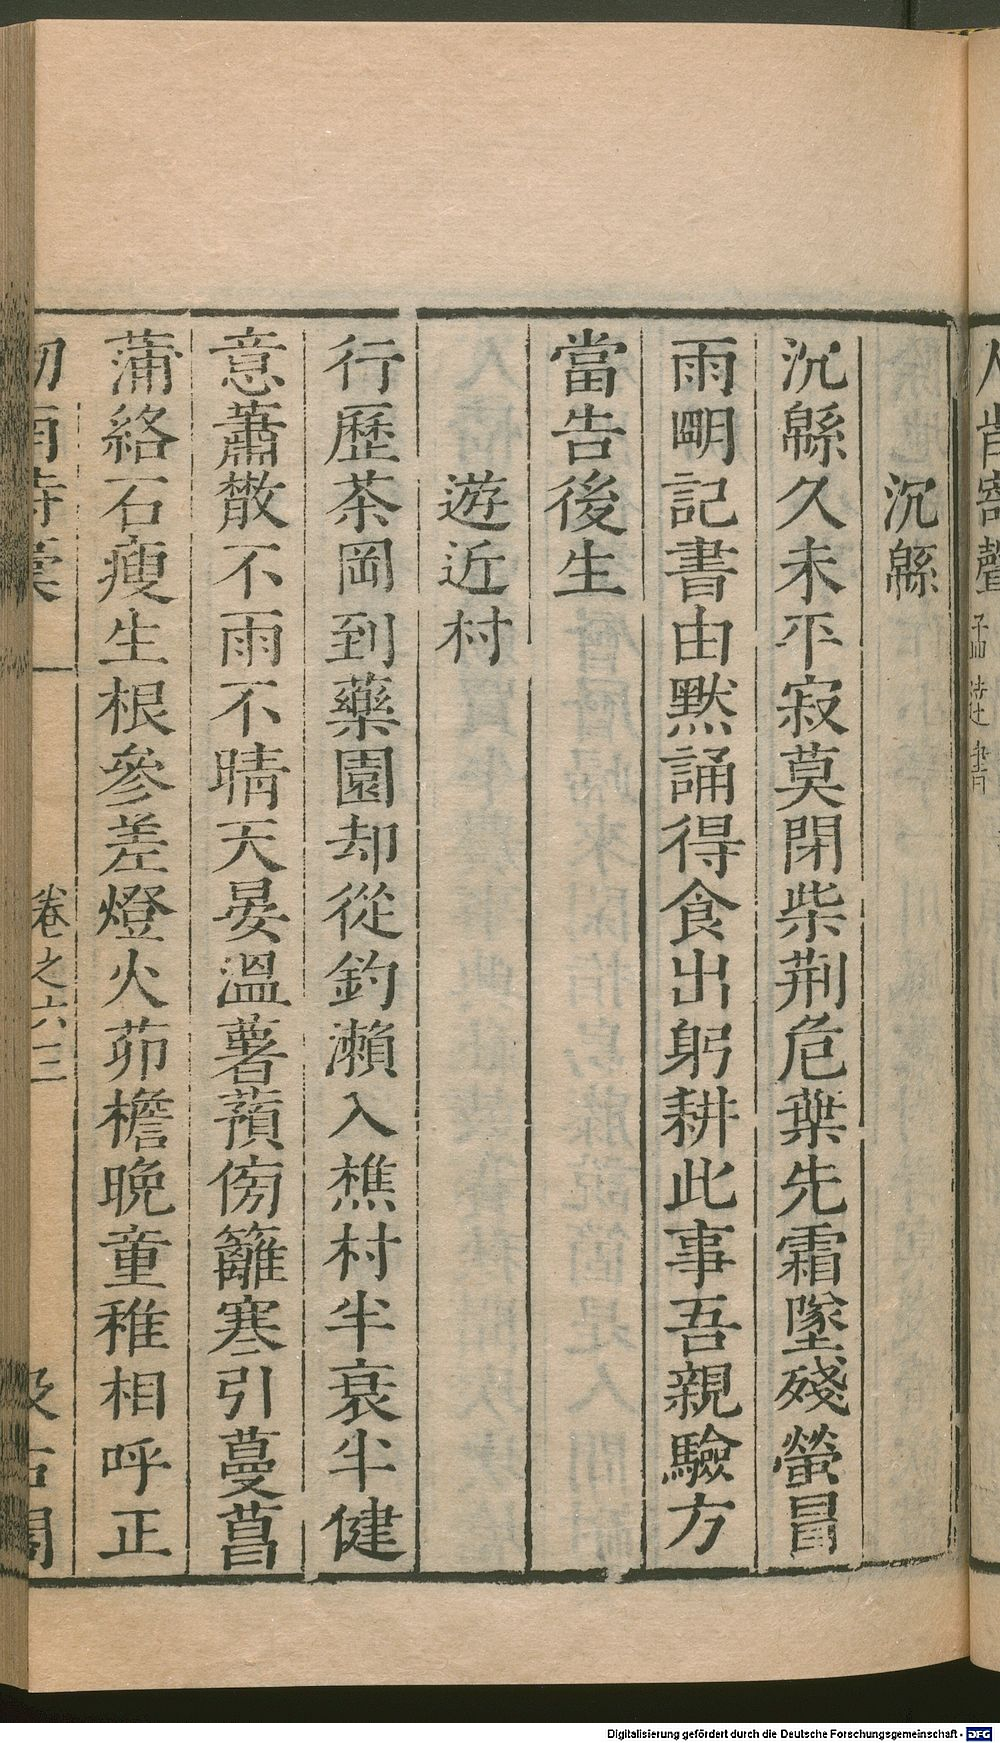 沉緜
沉緜久未平寂莫閉柴荆危葉先霜墜殘螢冒
雨眀記書由黙誦得食出躬耕此事吾親驗方
當告後生
遊近村
行歷茶岡到藥園却從釣瀨入樵村半衰半健
意蕭散不雨不晴天晏溫薯蕷傍籬寒引蔓菖
蒲絡石瘦生根參差燈火茆檐晚童稚相呼正
卷之六三
Digitalisierung gefördert durch die Deutsche Forschungsgemeinschaft - DFG